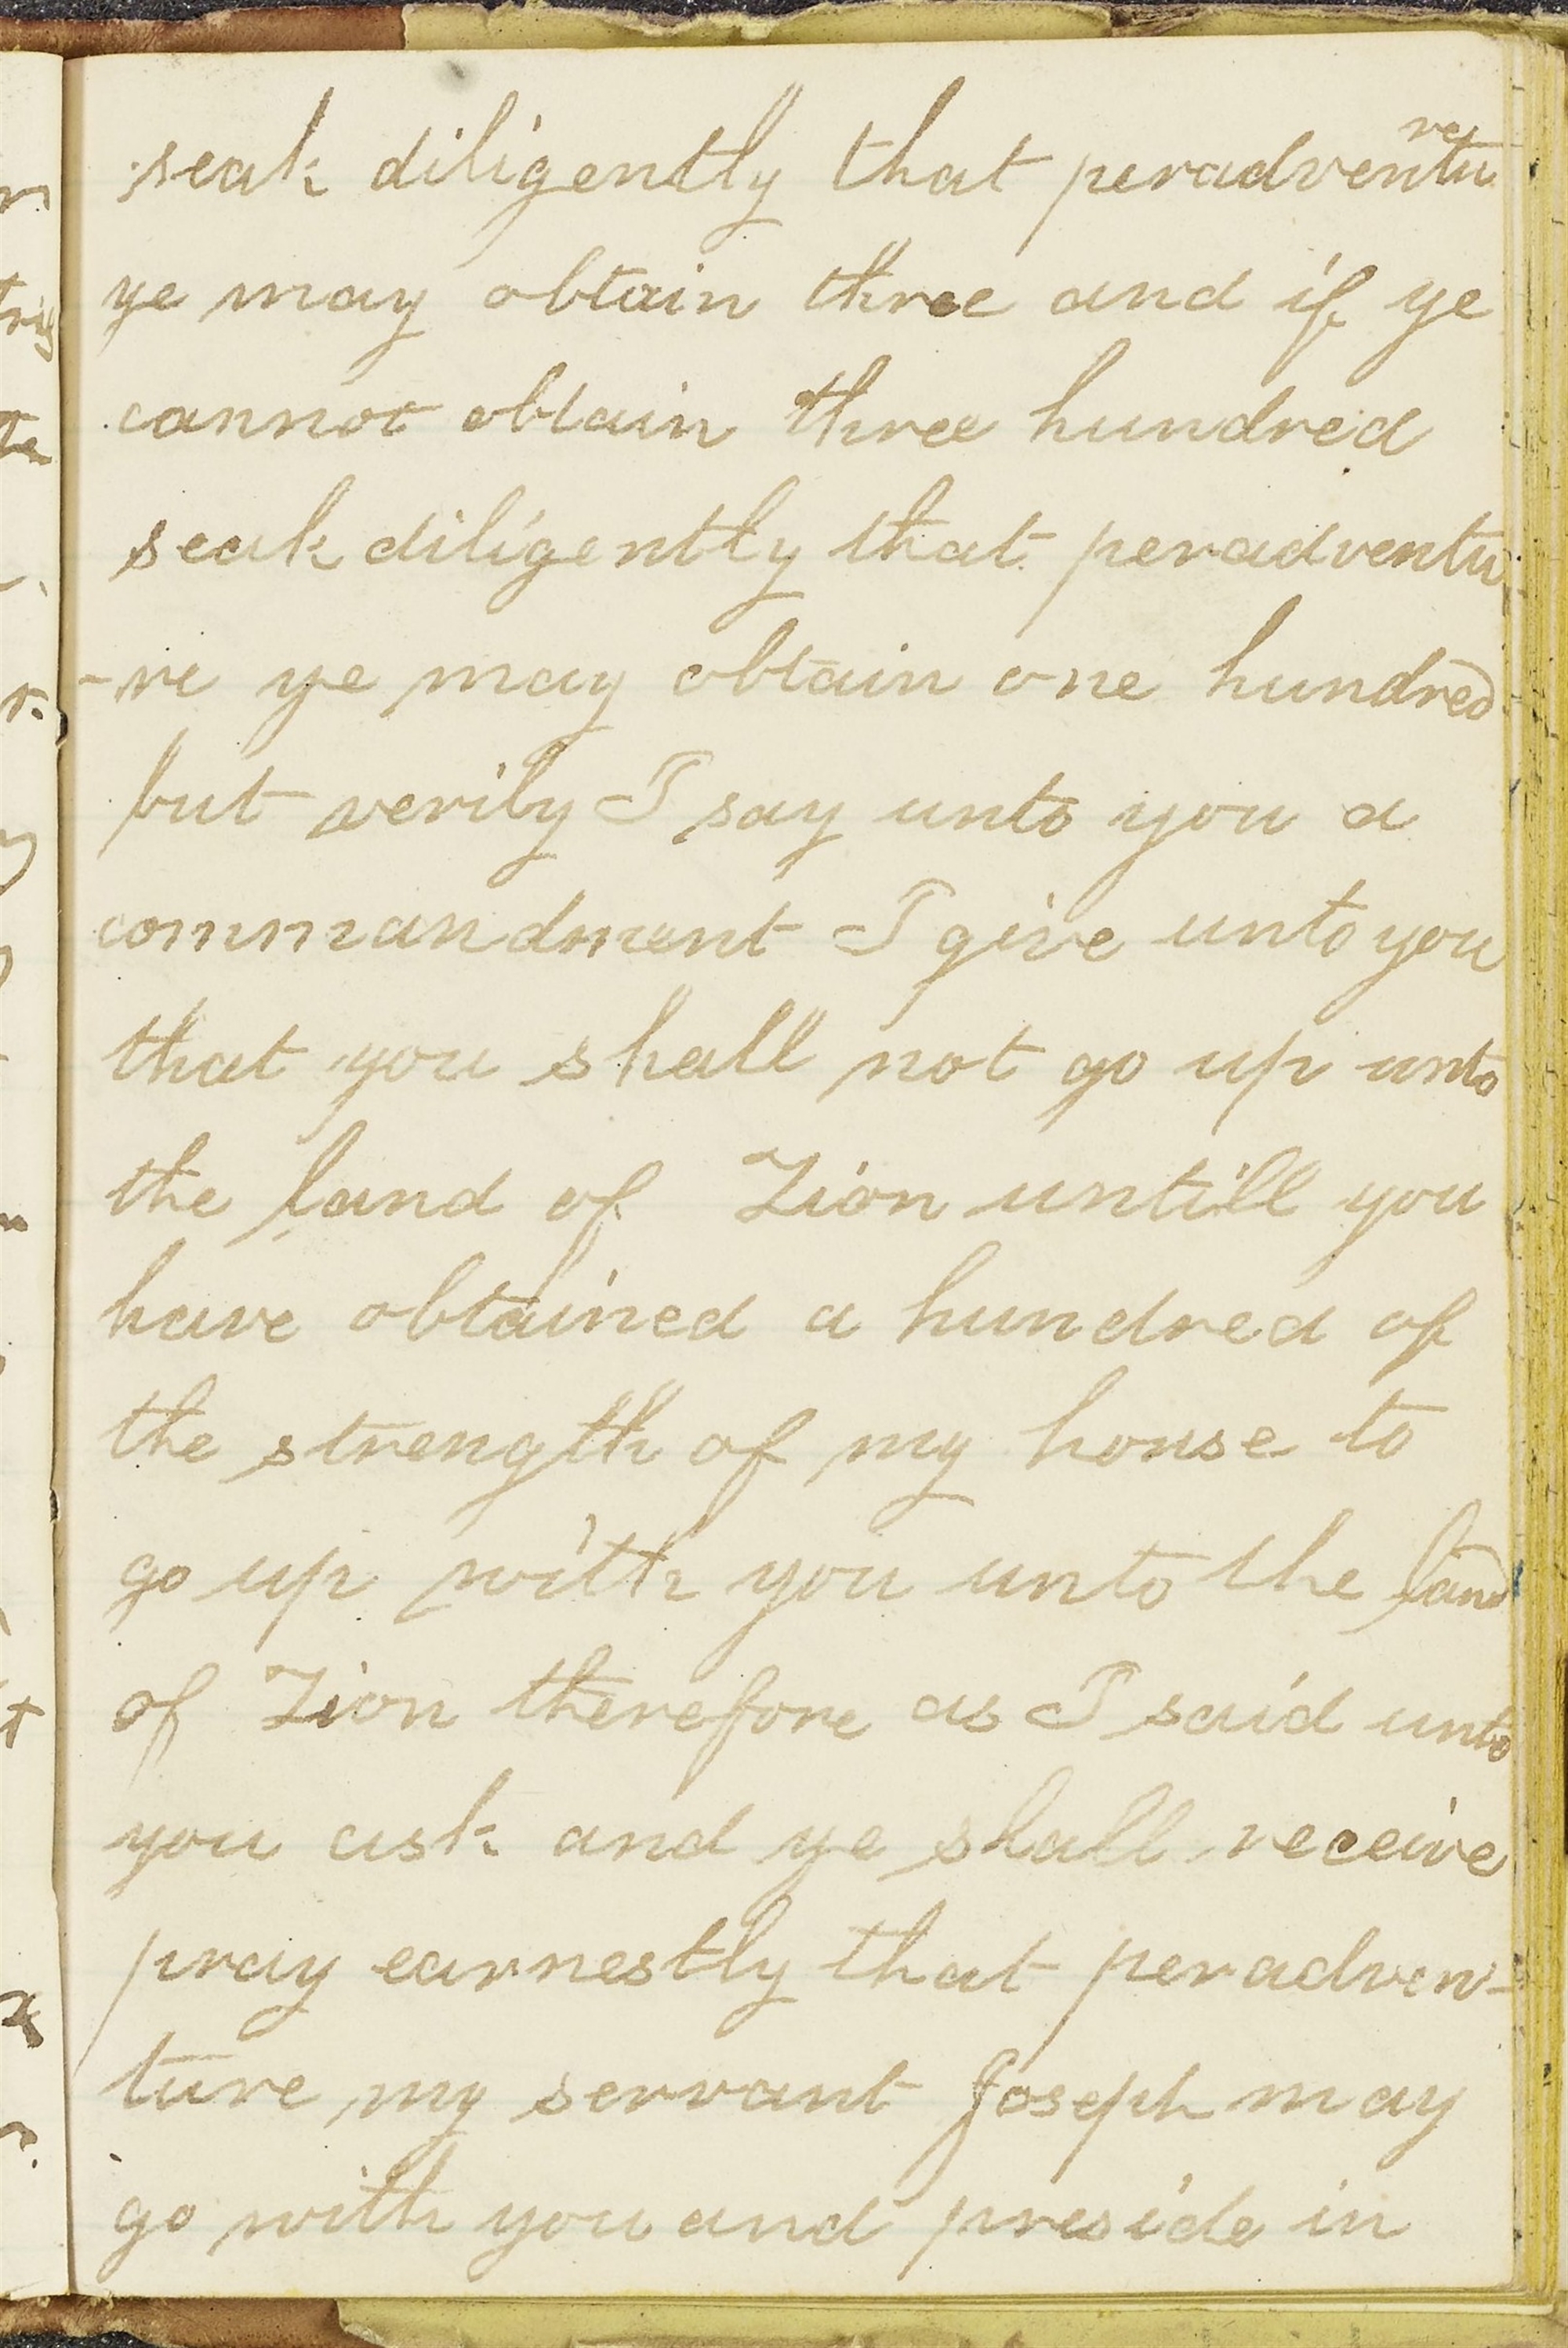 seak diligently that peradventure
ye may obtain three and if ye
cannot obtain three hundred
seak diligently that peradventu
-re ye may obtain one hundred
but verily I say unto you a
commandment I give unto you
that you shall not go up unto
the land of Zion untill you
have obtained a hundred of
the strength of my house to
go up with you unto the land
of Zion therefore as I said unto
you ask and ye shall receive
pray earnestly that peradven-
ture my servant Joseph may
go with you and preside in